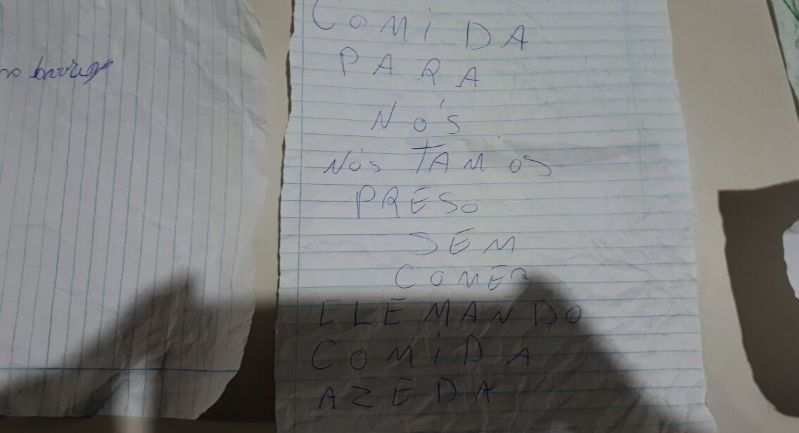 COMIDA
PARA
NÓS
NÓS TAMOS
PRESO
SEM
COMER
ELE MANDO
COMIDA
AZEDA